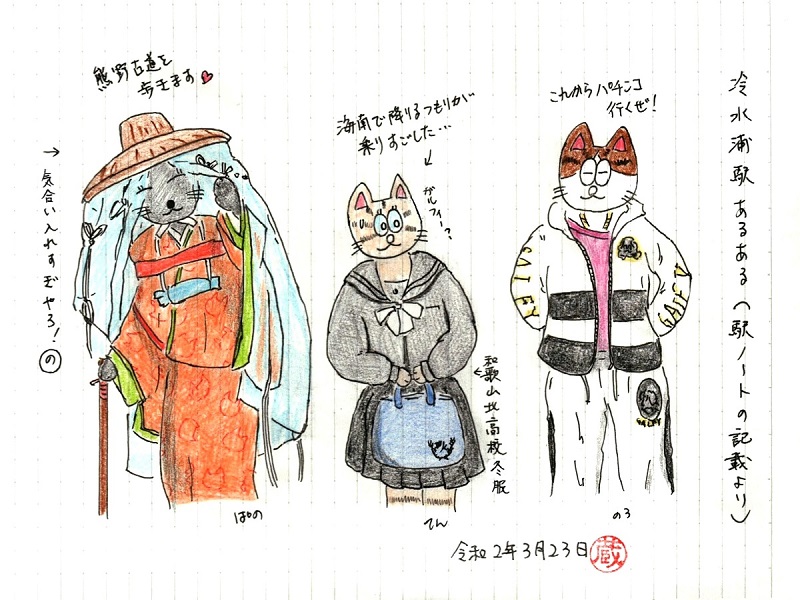 冷水浦駅あるある（駅ノートの記載より）
これからパチンコ
行くぜ！
海南で降りるつもりが
乗りすごした…
熊野古道を
歩きます
→気合い入れすぎやろ！の
ガルフィー？
和歌山北高校冬服
GALFY
GALFY
GALFY
ぱの
てん
のろ
令和2年3月23日
蔵